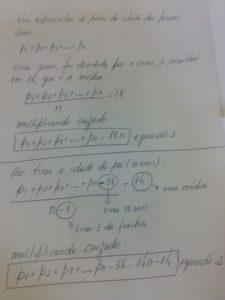 Vou representar a soma da idade das pessoas
como:
p1+p2+p3+...+pn.
Essa soma, foi dividida por n vezes, e resultou
em 18, que é a média.
p1+p2+p3+...+pn = 18
n
multiplicando cruzado:
p1+p2+p3+...+pn = 18n equação 1
Ao tirar a idade do pai (38 anos):
p1+p2+p3+...+pn-38 = 14 → nova média
n-1 tirar 38 anos
tirar 1 da família
multiplicando cruzado:
p1+p2+p3+...pn-38=14n-14 equação 2